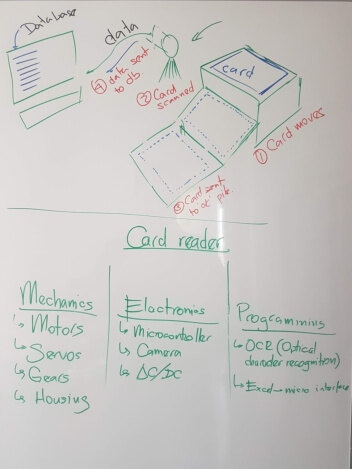 Database
data
④ data sent
to db.
② Card
scanned
card
① Card moves
③ Card sent
to "ok" pile
Card reader
Mechanics
↳ Motors
↳ Servos
↳ Gears
↳ Housing
Electronics
↳ Microcontroller
↳ Camera
↳ AC/DC
Programming
↳ OCR (Optical
character recognition)
↳ Excel-micro interface